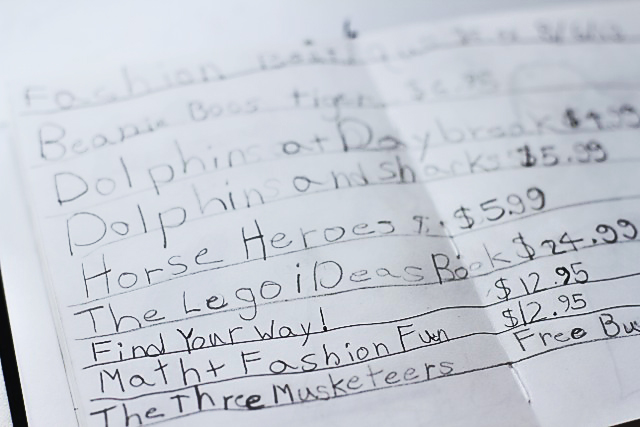 Fashion
Beanie Boss tiger $6.95
Dolphins at Daybreak $4.99
Dolphins and sharks $5.99
Horse Heroes $5.99
The Lego iDeas Book $24.99
Find Your Way! $12.95
Math + Fashion Fun $12.95
The Three Musketeers Free Bu